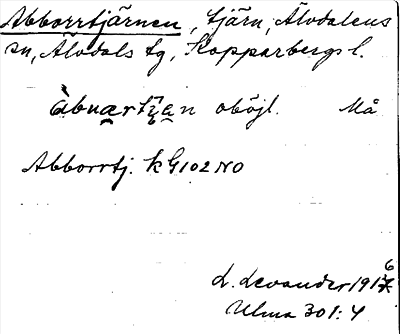 Abborrtjärnen, tjärn, Älvdalens
sn, Älvdals tg, Kopparbergs l.
oböjl. Må
Abborrtj. kG102NO
L. Levander 1916
Ulma 301:4